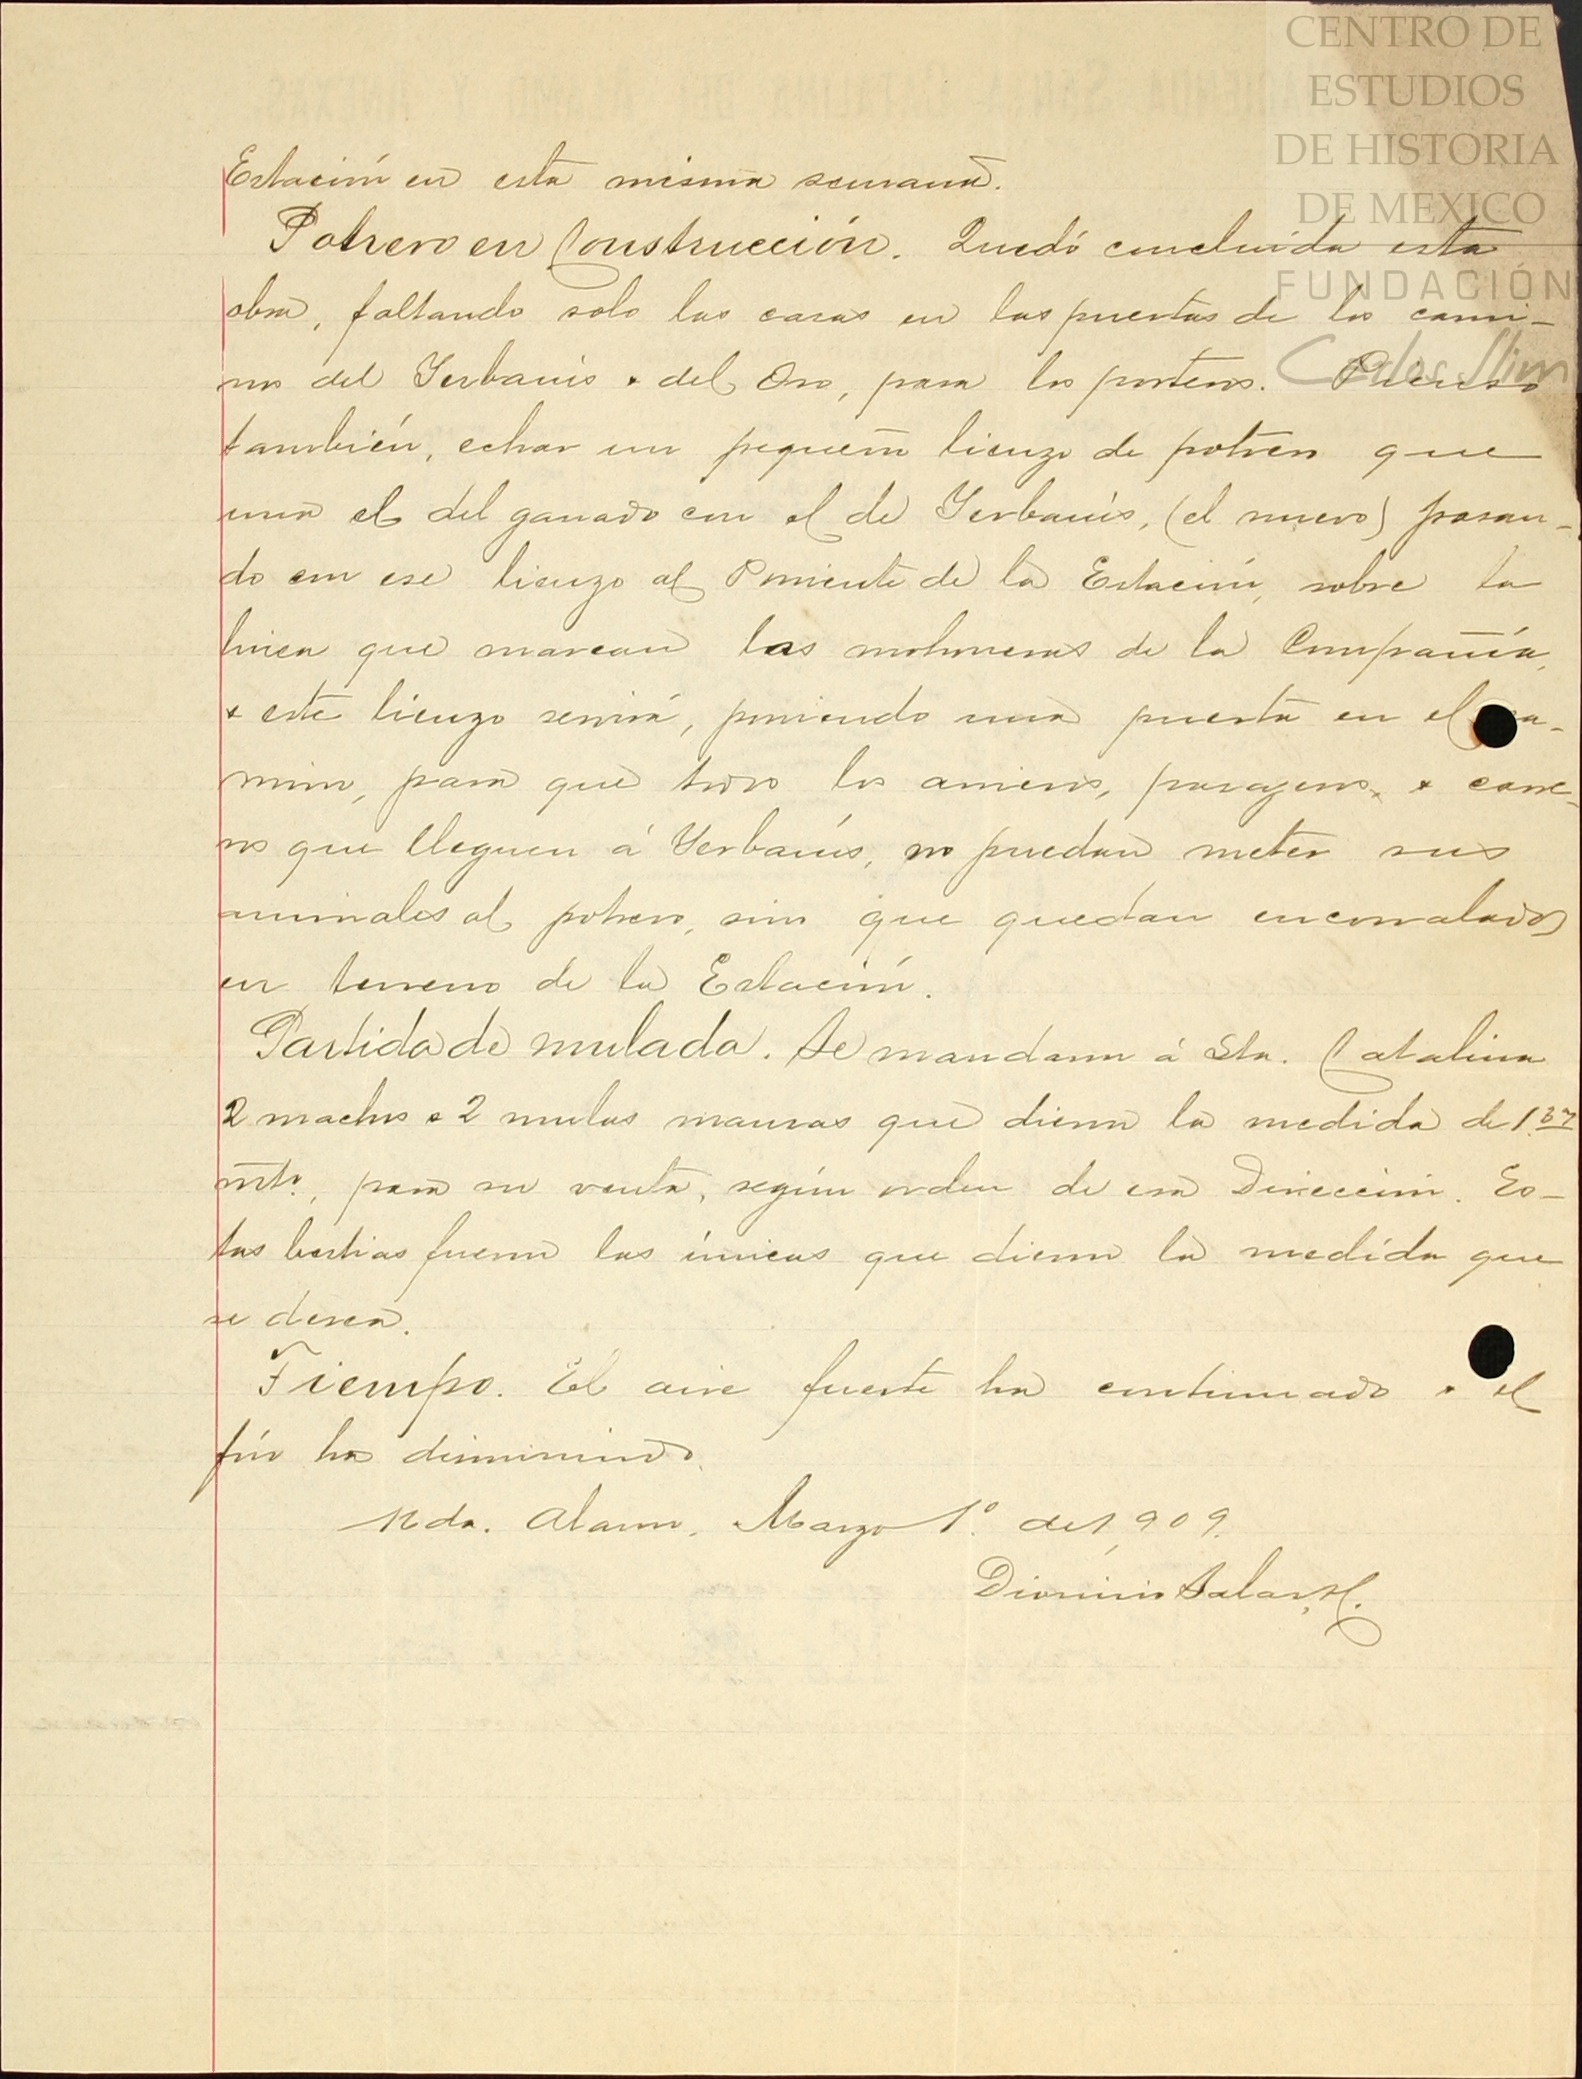 CENTRO DE
ESTUDIOS
DE HISTORIA
DE MEXICO
FUNDACIÓN
Carlos Slim
Estación en esta misma semana.
Potrero en Construcción. Quedó concluida esta
obra, faltando solo las casas en las puertas de los cami-
nos del Yerbanís y del Oro, para los porteros. Pienso
también, echar un pequeño lienzo de potrero que
una el del ganado con el de Yerbanís, (el nuevo) pasan-
do con ese lienzo al Poniente de la Estación, sobre la
linea que marcan las mohoneras de la Compañía,
y este lienzo servirá, poniendo una puerta en el ca-
mino, para que todos los arrieros, pasageros y carre-
ros que lleguen á Yerbanís, no puedan meter sus
animales al potrero, sino que quedan encorralados
en terreno de la Estación.
Partida de mulada. Se mandaron á Sta. Catalina
2 machos y 2 mulas mansas que dieron la medida de 1.37
mto., para su venta, según orden de esa Dirección. Es-
tas bestias fueron las únicas que dieron la medida que
se desea.
Tiempo. El aire fuerte ha continuado y el
frío ha disminuido.
Hda. Alamo, Marzo 1º. de 1,909.
Dionisio Salas, H.